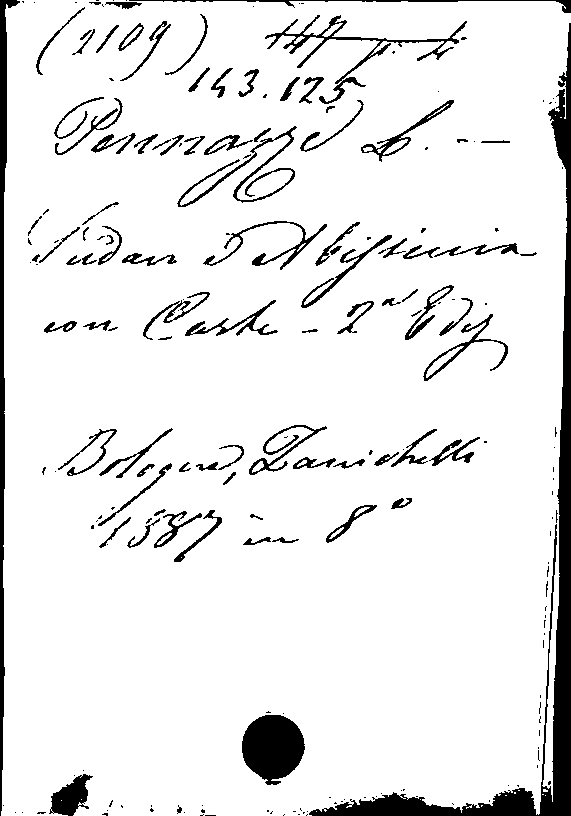 (2109) 147 p. 4
143.125
Pennazzi L. —
Sudan e Abissinia
con Carte - 2ª Ediz
Bologna, Zanichelli
1887 in 8º